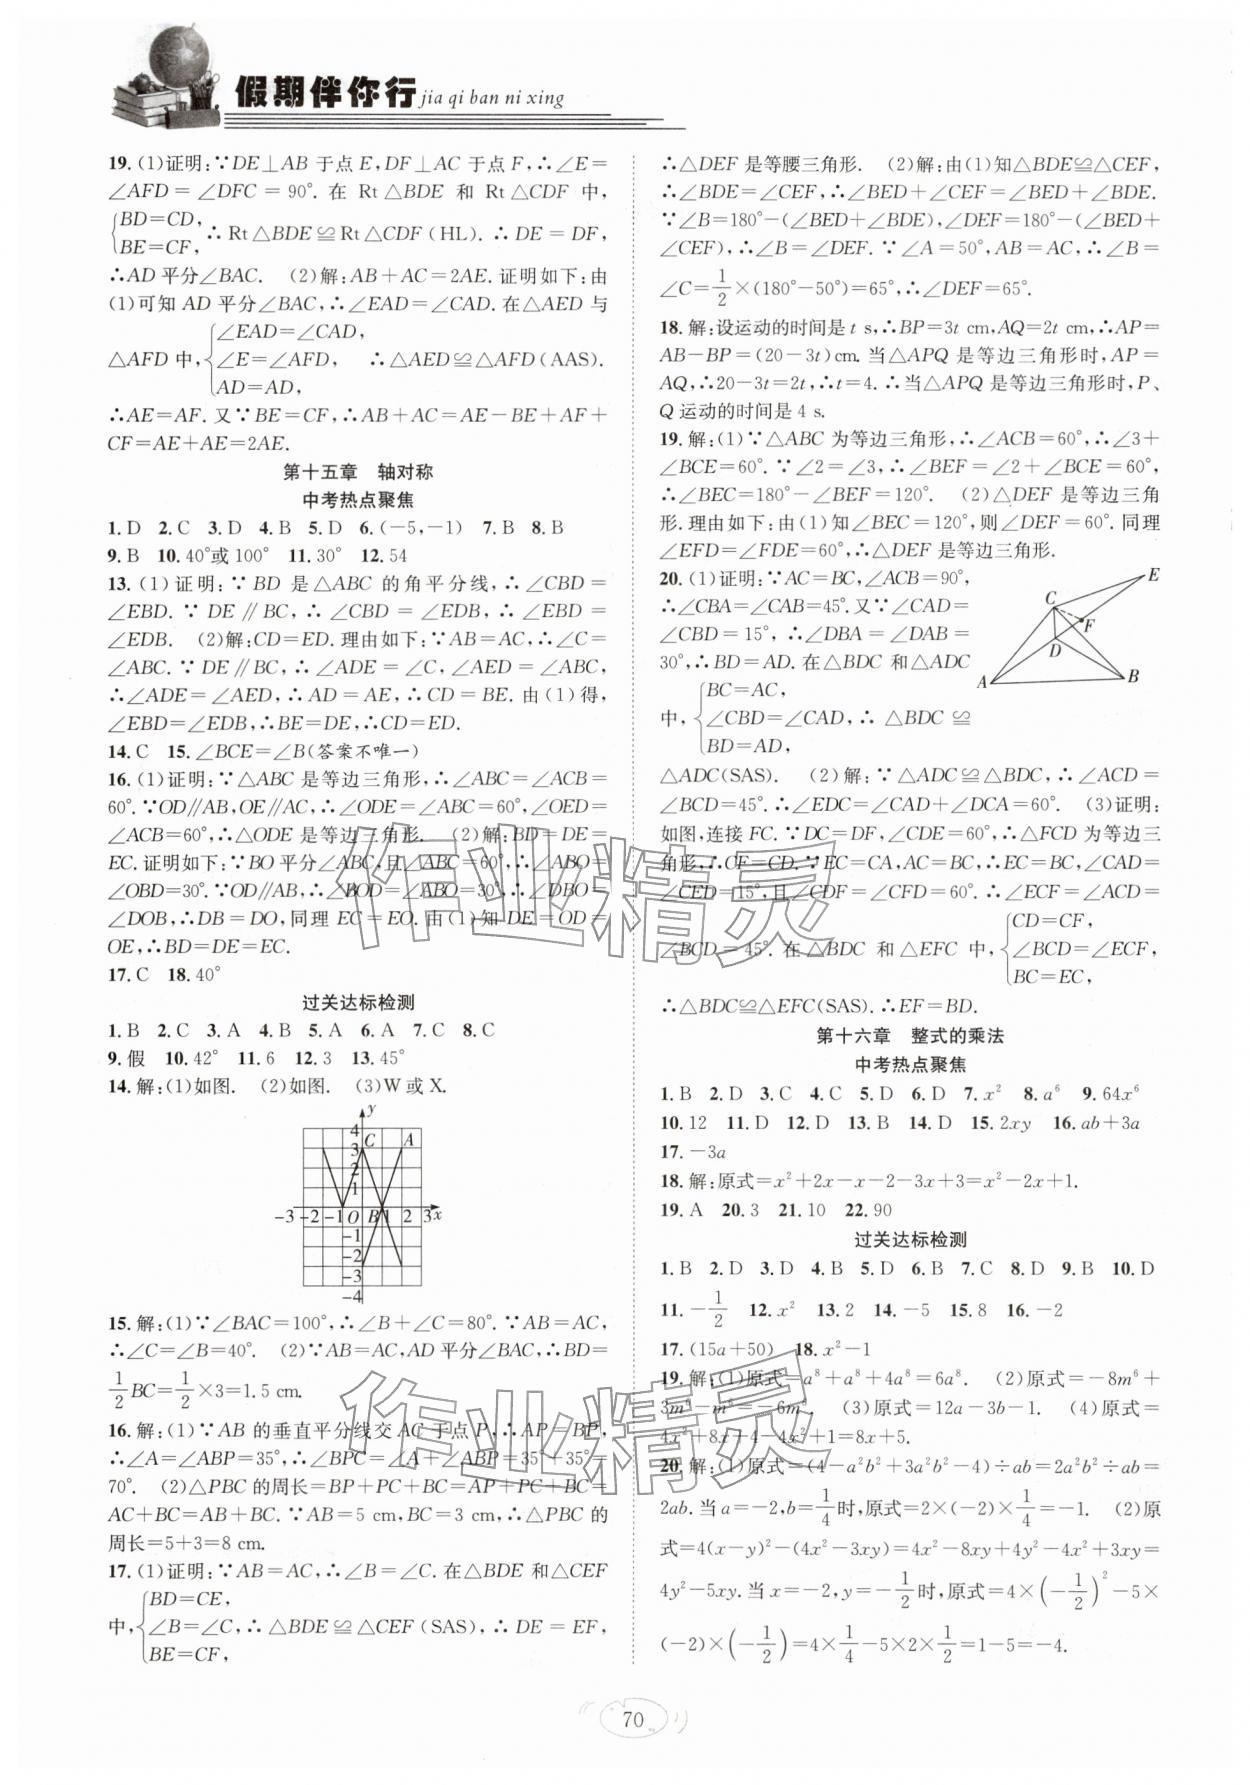 假期伴你行 jia qi ban ni xing
19. (1)证明:∵DE⊥AB 于点 E,DF⊥AC 于点 F,∴∠E=
∠AFD=∠DFC=90°. 在 Rt△BDE 和 Rt△CDF 中,
{BD=CD,
BE=CF, ∴Rt△BDE≌Rt△CDF(HL). ∴DE=DF,
∴AD 平分∠BAC. (2)解:AB+AC=2AE. 证明如下:由
(1)可知 AD 平分∠BAC,∴∠EAD=∠CAD. 在△AED 与
△AFD 中,{∠EAD=∠CAD,
∠E=∠AFD, ∴△AED≌△AFD(AAS).
AD=AD,
∴AE=AF. 又∵BE=CF,∴AB+AC=AE-BE+AF+
CF=AE+AE=2AE.
第十五章 轴对称
中考热点聚焦
1. D 2. C 3. D 4. B 5. D 6. (-5,-1) 7. B 8. B
9. B 10. 40°或 100° 11. 30° 12. 54
13. (1)证明:∵BD 是△ABC 的角平分线,∴∠CBD=
∠EBD. ∵DE∥BC,∴∠CBD=∠EDB,∴∠EBD=
∠EDB. (2)解:CD=ED. 理由如下:∵AB=AC,∴∠C=
∠ABC. ∵DE∥BC,∴∠ADE=∠C,∠AED=∠ABC,
∴∠ADE=∠AED,∴AD=AE,∴CD=BE. 由(1)得,
∠EBD=∠EDB,∴BE=DE,∴CD=ED.
14. C 15. ∠BCE=∠B(答案不唯一)
16. (1)证明:∵△ABC 是等边三角形,∴∠ABC=∠ACB=
60°. ∵OD∥AB,OE∥AC,∴∠ODE=∠ABC=60°,∠OED=
∠ACB=60°,∴△ODE 是等边三角形. (2)解:BD=DE=
EC. 证明如下:∵BO 平分∠ABC,且∠ABC=60°,∴∠ABO=
∠OBD=30°. ∵OD∥AB,∴∠BOD=∠ABO=30°,∴∠DBO=
∠DOB,∴DB=DO,同理 EC=EO. 由(1)知 DE=OD=
OE,∴BD=DE=EC.
17. C 18. 40°
过关达标检测
1. B 2. C 3. A 4. B 5. A 6. A 7. C 8. C
9. 假 10. 42° 11. 6 12. 3 13. 45°
14. 解:(1)如图. (2)如图. (3)W 或 X.
y
4
3 C A
2
1
-3 -2 -1 O B 1 2 3 x
-1
-2
-3
-4
15. 解:(1)∵∠BAC=100°,∴∠B+∠C=80°. ∵AB=AC,
∴∠C=∠B=40°. (2)∵AB=AC,AD 平分∠BAC,∴BD=
1/2 BC=1/2×3=1.5 cm.
16. 解:(1)∵AB 的垂直平分线交 AC 于点 P,∴AP=BP,
∴∠A=∠ABP=35°,∴∠BPC=∠A+∠ABP=35°+35°=
70°. (2)△PBC 的周长=BP+PC+BC=AP+PC+BC=
AC+BC=AB+BC. ∵AB=5 cm,BC=3 cm,∴△PBC 的
周长=5+3=8 cm.
17. (1)证明:∵AB=AC,∴∠B=∠C. 在△BDE 和△CEF
中,{BD=CE,
∠B=∠C, ∴△BDE≌△CEF(SAS),∴DE=EF,
BE=CF,
∴△DEF 是等腰三角形. (2)解:由(1)知△BDE≌△CEF,
∴∠BDE=∠CEF,∴∠BED+∠CEF=∠BED+∠BDE.
∵∠B=180°-(∠BED+∠BDE),∠DEF=180°-(∠BED+
∠CEF),∴∠B=∠DEF. ∵∠A=50°,AB=AC,∴∠B=
∠C=1/2×(180°-50°)=65°,∴∠DEF=65°.
18. 解:设运动的时间是 t s,∴BP=3t cm,AQ=2t cm,∴AP=
AB-BP=(20-3t)cm. 当△APQ 是等边三角形时,AP=
AQ,∴20-3t=2t,∴t=4. ∴当△APQ 是等边三角形时,P、
Q 运动的时间是 4 s.
19. 解:(1)∵△ABC 为等边三角形,∴∠ACB=60°,∴∠3+
∠BCE=60°. ∵∠2=∠3,∴∠BEF=∠2+∠BCE=60°,
∴∠BEC=180°-∠BEF=120°. (2)△DEF 是等边三角
形. 理由如下:由(1)知∠BEC=120°,则∠DEF=60°. 同理
∠EFD=∠FDE=60°,∴△DEF 是等边三角形.
20. (1)证明:∵AC=BC,∠ACB=90°,
∴∠CBA=∠CAB=45°. 又∵∠CAD=
∠CBD=15°,∴∠DBA=∠DAB=
30°,∴BD=AD. 在△BDC 和△ADC
中,{BC=AC,
∠CBD=∠CAD,∴△BDC≌
BD=AD,
A B C D E F
△ADC(SAS). (2)解:∵△ADC≌△BDC,∴∠ACD=
∠BCD=45°. ∴∠EDC=∠CAD+∠DCA=60°. (3)证明:
如图,连接 FC. ∵DC=DF,∠CDE=60°,∴△FCD 为等边三
角形,∴CF=CD. ∵EC=CA,AC=BC,∴EC=BC,∠CAD=
∠CED=15°,且∠CDF=∠CFD=60°. ∴∠ECF=∠ACD=
∠BCD=45°. 在△BDC 和△EFC 中,{CD=CF,
∠BCD=∠ECF,
BC=EC,
∴△BDC≌△EFC(SAS). ∴EF=BD.
第十六章 整式的乘法
中考热点聚焦
1. B 2. D 3. C 4. C 5. D 6. D 7. x² 8. a⁶ 9. 64x⁶
10. 12 11. D 12. D 13. B 14. D 15. 2xy 16. ab+3a
17. -3a
18. 解:原式=x²+2x-x-2-3x+3=x²-2x+1.
19. A 20. 3 21. 10 22. 90
过关达标检测
1. B 2. D 3. D 4. B 5. D 6. B 7. C 8. D 9. B 10. D
11. -1/2 12. x² 13. 2 14. -5 15. 8 16. -2
17. (15a+50) 18. x²-1
19. 解:(1)原式=a⁸+a⁸+4a⁸=6a⁸. (2)原式=-8m⁶+
3m⁶-m⁶=-6m⁶. (3)原式=12a-3b-1. (4)原式=
4x²+8x+4-4x²+1=8x+5.
20. 解:(1)原式=(4-a²b²+3a²b²-4)÷ab=2a²b²÷ab=
2ab. 当 a=-2,b=1/4时,原式=2×(-2)×1/4=-1. (2)原
式=4(x-y)²-(4x²-3xy)=4x²-8xy+4y²-4x²+3xy=
4y²-5xy. 当 x=-2,y=-1/2时,原式=4×(-1/2)²-5×
(-2)×(-1/2)=4×1/4-5×2×1/2=1-5=-4.
作业精灵
作业精灵
70